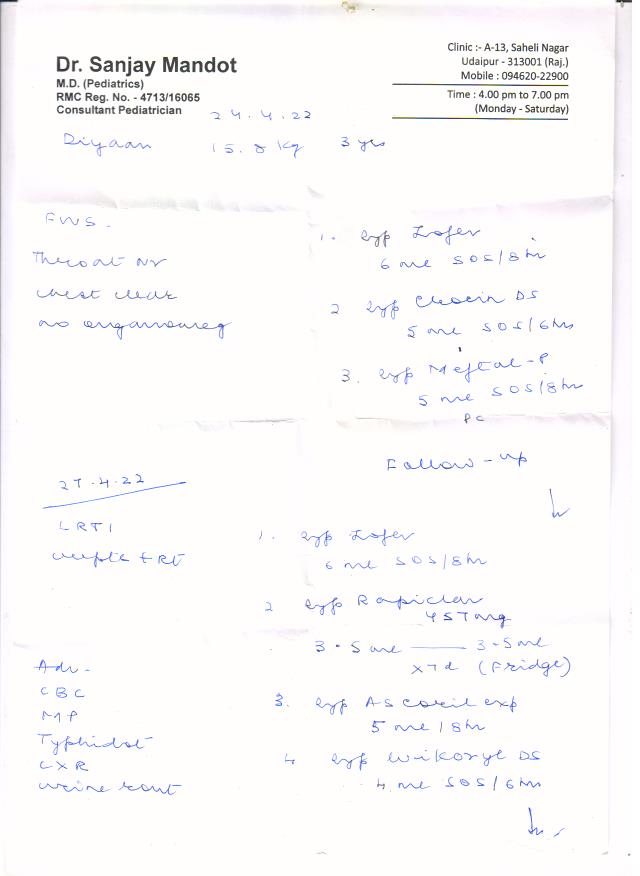 Dr. Sanjay Mandot
M.D. (Pediatrics)
RMC Reg. No. - 4713/16065
Consultant Pediatrician
Clinic :- A-13, Saheli Nagar
Udaipur - 313001 (Raj.)
Mobile : 094620-22900
Time : 4.00 pm to 7.00 pm
(Monday - Saturday)
24.4.22
Diyaan 15.8 kg 3 yrs
FWS -
Throat Nr
chest clear
no
1. syp Zofer
6 ml SOS/8hr
2 syp DS
5 ml SOS/6hrs
3. syp Meftal-P
5 ml SOS/8hr
PC
Follow-up
27.4.22
LRTI
+ RT
1. syp Zofer
6 ml SOS/8hr
2 syp Rapiclav
457mg
3.5ml — 3.5ml
x7d (Fridge)
3. syp Ascoril exp
5 ml/8hr
4 syp Wikoryl DS
4 ml SOS/6hr
Adv -
CBC
MP
Typhidot
CXR
urine rout